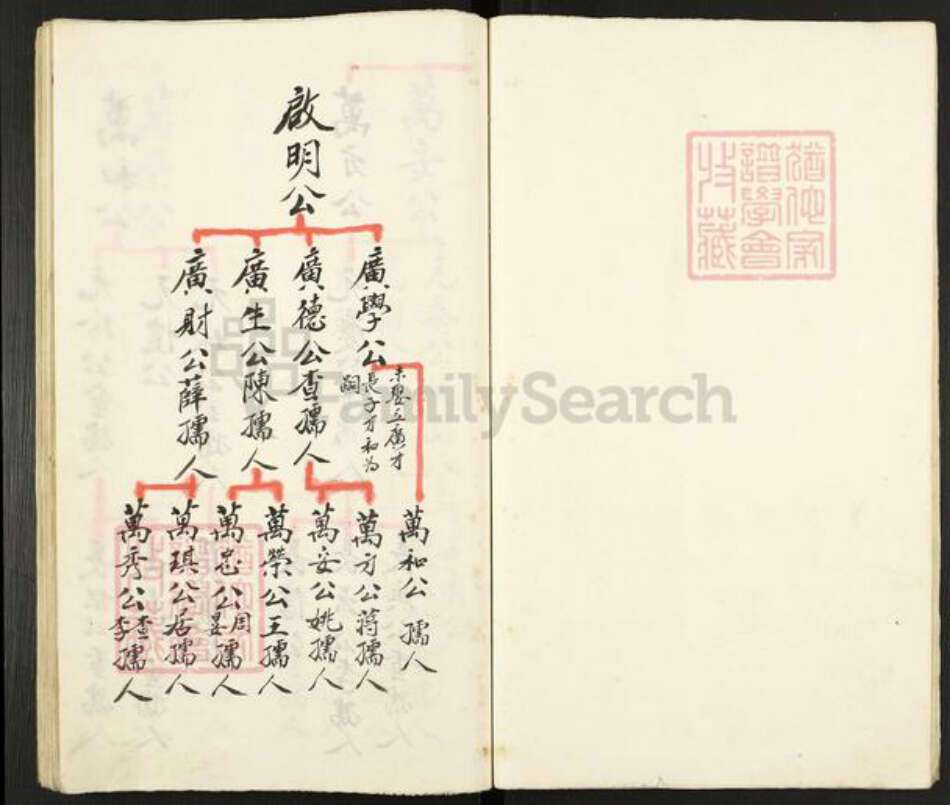 啟明公
廣學公
未娶立廣才
長子萬和為
嗣
廣德公查孺人
廣生公陳孺人
廣財公薛孺人
萬和公 孺人
萬方公蔣孺人
萬安公姚孺人
萬榮公王孺人
萬忠公周晏孺人
萬琪公居孺人
萬秀公查李孺人
猶他家
譜學會
收藏
FamilySearch